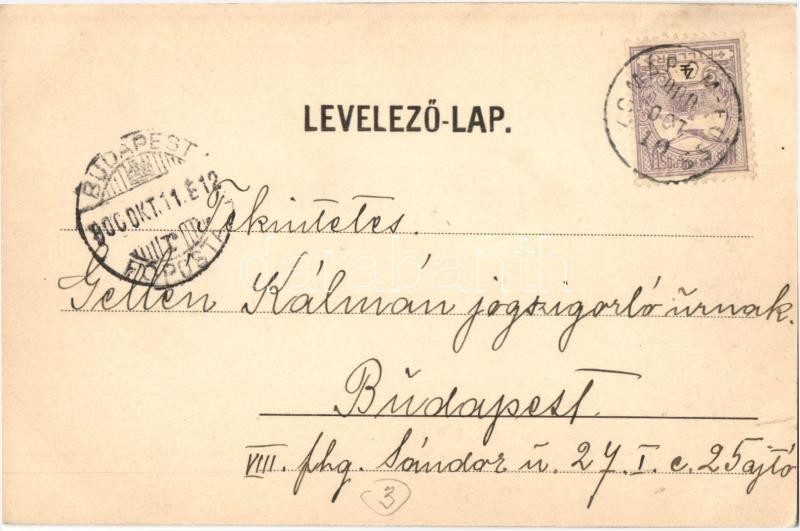 LEVELEZŐ-LAP.
4
BUDAPEST
900 OKT. 11. É 12
FŐPOSTA
Tekintetes.
Gellén Kálmán jogszigorló úrnak.
Budapest
VIII. fhg. Sándor u. 27. I. e. 25 ajtó
3
darabanth